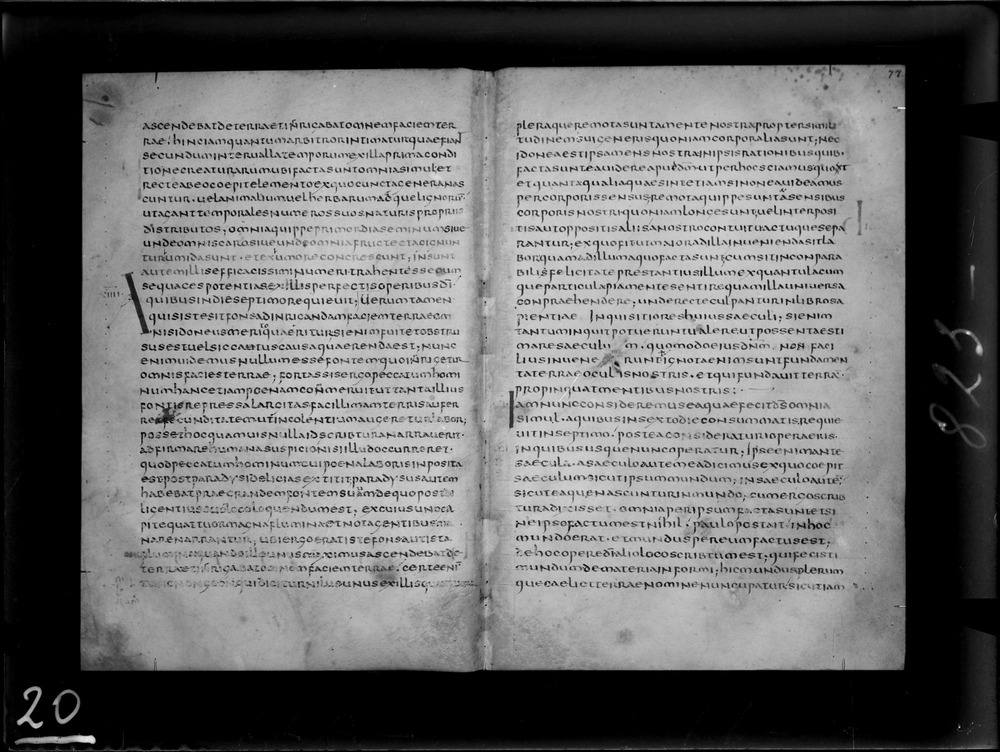 77
ascendebatdeterraetinricabatomnemfaciemter
rae; hinciamquantumarbitrorintimaturquaefiant
secundumintervallatemporumexillaprimacondi
tionecreaturarumubifactasuntomniasimul; et
recteabeocoepitelementoexquocunctageneranas
cuntur. velanimaliumvelherbarumadquelignorum
utagant temporalesnumerossuosnaturispropriis
distributos; omniaquippeprimordiaseminumsive
undeomniscarosiveundeomniafructectagignun
turumidasunt. etexumoreconcrescunt; insunt
autemillisefficacissiminumeritrahentessecum
sequacespotentiasexillisperfectisoperibusdi.
quibusindieseptimorequievit; Verumtamen
quisistesitfonsadinricandamfaciemterrae
nisidoneusmeritoquaeritursienimfuitetobstru
susestvelsiccatuscausaquaerendaest; nunc
enimvidemusnullumessefontemquoinricetur
omnisfaciesterrae; fortassisergopeccatumhomi
numhancetiampoenammeruituttantaillius
fontisrefressalargitasfacillimamterrisaufer
retfecunditatemutincolentiumaugereturlabor;
possethocquamvisnullaidscribturanarraverit.
adfirmarehumanasuspicionisiilludoccurreret.
quodpeccatumhominumcuipoenalaborisinposita
estpostparadysideliciasextitit paradysusautem
habebatpraegrandemfontemsuumdequoposte
licentius suolocoloquendumest, excuiusunoca
pitequattuormagnafluminaetnotagentibusem
nareenarrantur; ubiergoeratistefonsautista
ascendebatde
terraetinrigabatomnemfaciemterrae. certeeni
pleraqueremotasuntamentenostrapropterdissimili
tudinemsuigenerisquoniamcorporaliasunt; nec
idoneaestipsamensnostrainipsisrationibusquib.
factasunteavidereapuddmutperhocsciamusquot
etquantaqualiaquaesintetiamsinoneavideamus
percorporissensusremotaquippesuntasensibus
corporisnostriquoniamlongesuntvelinterposi
tisautoppositisaliisanostrocontuitutactuquesepa
rantur; exquofitutmaioradillainveniendasitla
borquamadillumaquofactasuntcumsitinconpara
bilisfelicitateprestantiusillumexquantulacum
queparticulapiamentesentirequamillauniversa
conpraehendere; underecteculpanturinlibrosa
pientiae Inquisitoreshuiussaeculi; sienim
tantuminquitpotueruntvalereutpossentaesti
maresaeculum. quomodoeiusdnm. nonfaci
liusinvenerunt ignotaenimsuntfundamen
taterraeoculisnostris. etquifundavitterra
propinquatmentibusnostris;
Iamnuncconsideremuseaquaefecitdsomnia
simul. aquibusinsextodieconsummatisrequie
vitinseptimo. posteaconsideraturioperaeius.
inquibususquenuncoperatur; Ipseenimante
saecula. asaeculoautemeadicimusexquocoepit
saeculumsicutipsummundum; insaeculoaute
sicuteaquenascunturinmundo; cumergoscrib
turadixisset. omniaperipsumfactasuntetsi
neipsofactumestnihil. paulopostait inhoc
mundoerat. etmunduspereumfactusest;
dehocoperedialiolocoscribtumest; quifecisti
mundumdemateriainformi; hicmundusplerum
quecaelietterraenominenuncupatursicutiam
20
823